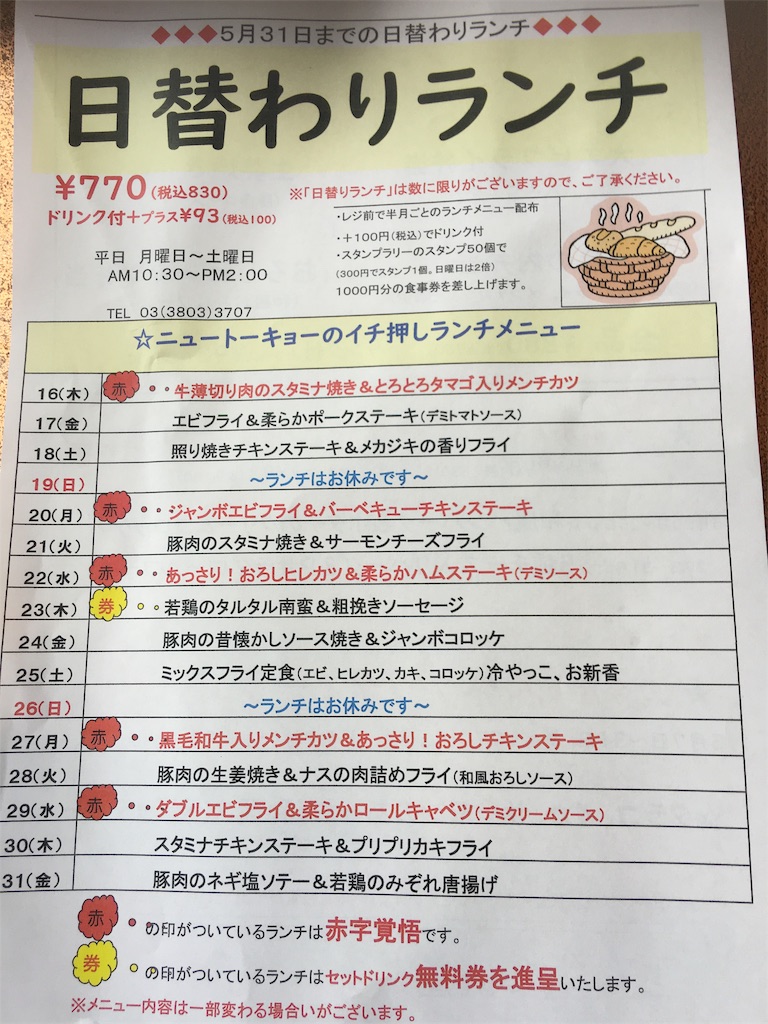 ◆◆◆5月31日までの日替わりランチ◆◆◆
日替わりランチ
¥770(税込830)
ドリンク付+プラス¥93(税込100)
※「日替りランチ」は数に限りがございますので、ご了承ください。
平日 月曜日~土曜日
AM10:30~PM2:00
TEL 03(3803)3707
・レジ前で半月ごとのランチメニュー配布
・+100円(税込)でドリンク付
・スタンプラリーのスタンプ50個で
(300円でスタンプ1個。日曜日は2倍)
1000円分の食事券を差し上げます。
☆ニュートーキョーのイチ押しランチメニュー
16(木) 赤 ・・牛薄切り肉のスタミナ焼き&とろとろタマゴ入りメンチカツ
17(金) エビフライ&柔らかポークステーキ(デミトマトソース)
18(土) 照り焼きチキンステーキ&メカジキの香りフライ
19(日) ~ランチはお休みです~
20(月) 赤 ・・ジャンボエビフライ&バーベキューチキンステーキ
21(火) 豚肉のスタミナ焼き&サーモンチーズフライ
22(水) 赤 ・・あっさり!おろしヒレカツ&柔らかハムステーキ(デミソース)
23(木) 券 ・・若鶏のタルタル南蛮&粗挽きソーセージ
24(金) 豚肉の昔懐かしソース焼き&ジャンボコロッケ
25(土) ミックスフライ定食(エビ、ヒレカツ、カキ、コロッケ)冷やっこ、お新香
26(日) ~ランチはお休みです~
27(月) 赤 ・・黒毛和牛入りメンチカツ&あっさり!おろしチキンステーキ
28(火) 豚肉の生姜焼き&ナスの肉詰めフライ(和風おろしソース)
29(水) 赤 ・・ダブルエビフライ&柔らかロールキャベツ(デミクリームソース)
30(木) スタミナチキンステーキ&プリプリカキフライ
31(金) 豚肉のネギ塩ソテー&若鶏のみぞれ唐揚げ
赤 ・・の印がついているランチは赤字覚悟です。
券 ・・の印がついているランチはセットドリンク無料券を進呈いたします。
※メニュー内容は一部変わる場合いがございます。